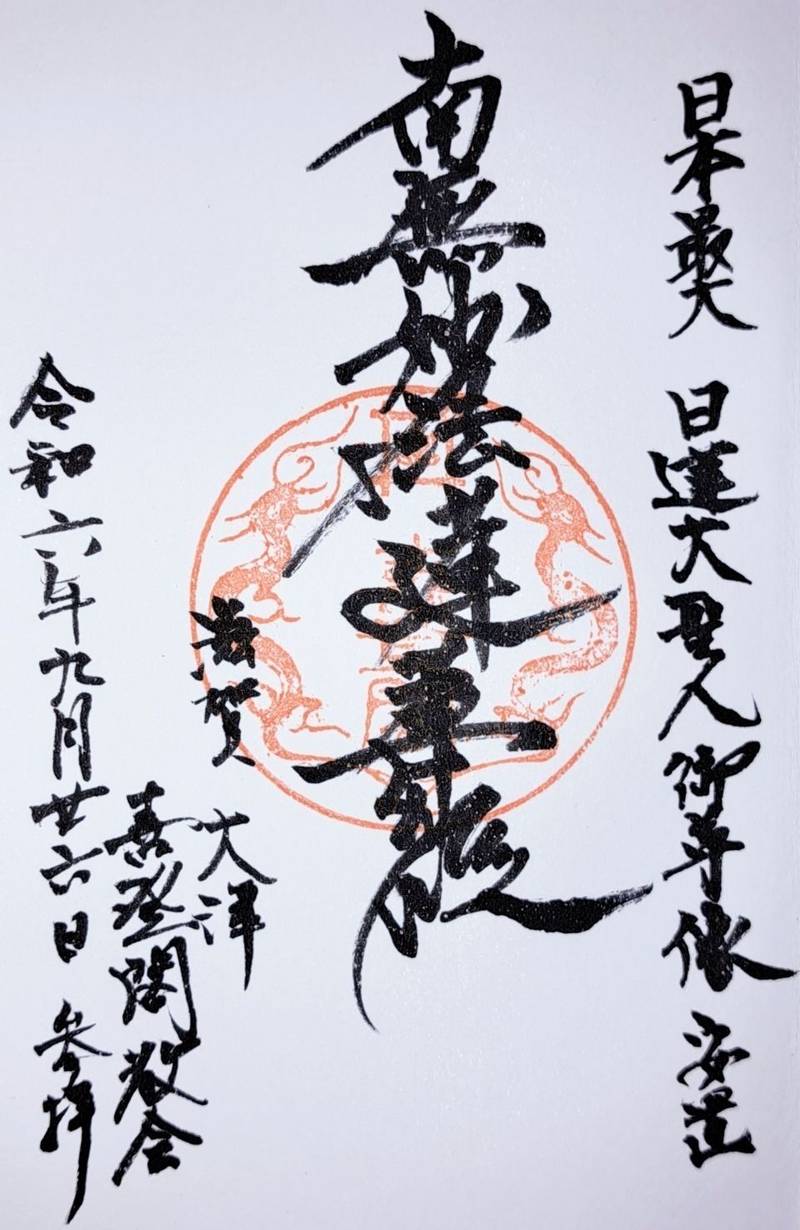 日本最大 日蓮大聖人御尊像 安置
南無妙法蓮華経
滋賀
大津
喜登閣教会
令和六年九月廿六日 参拝